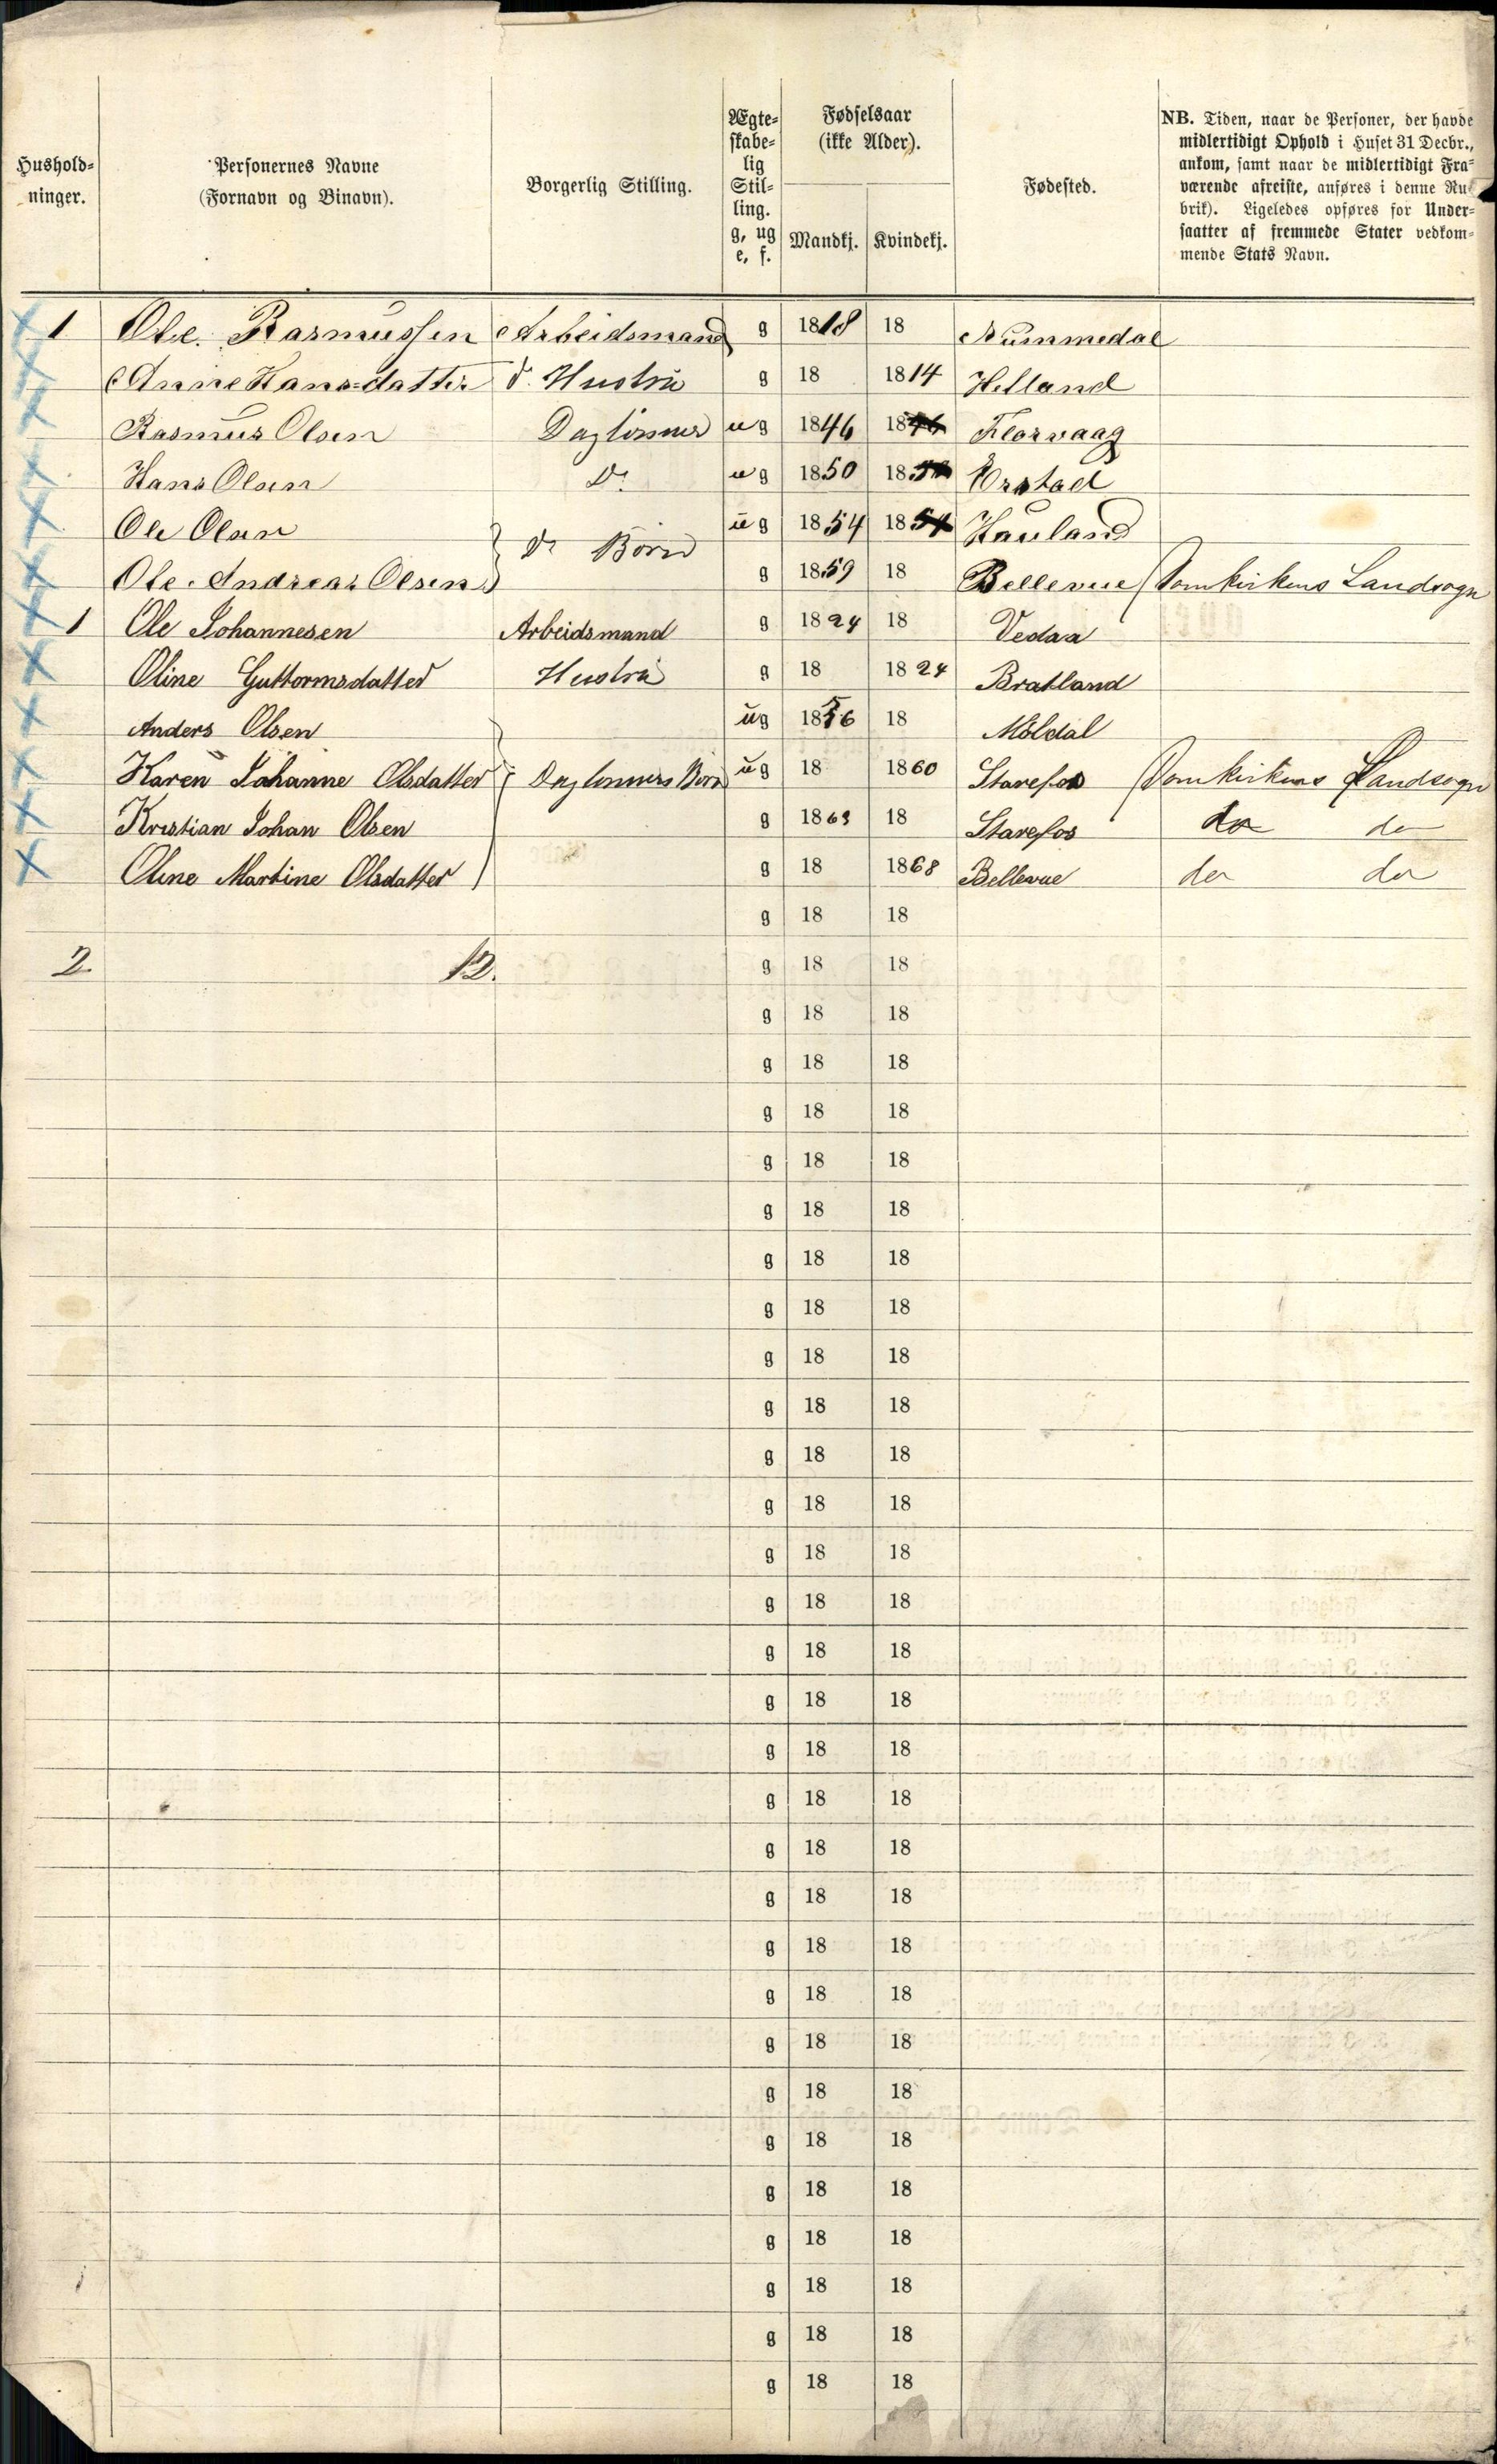 Hushold-
ninger.
Personernes Navne
(Fornavn og Binavn).
Borgerlig Stilling.
Ægte-
skabe-
lig
Stil-
ling.
g, ug
e, f.
Fødselsaar
(ikke Alder).
Mandkj.
Kvindekj.
Fødested.
NB. Tiden, naar de Personer, der havde
midlertidigt Ophold i Huset 31 Decbr.,
ankom, samt naar de midlertidigt Fra-
værende afreiste, anføres i denne Ru-
brik). Ligeledes opføres for Under-
saatter af fremmede Stater vedkom-
mende Stats Navn.
1 Ole Rasmussen Arbeidsmand g 1818 18 Nummedal
Anne Hans=datter d. Hustru g 18 1814 Helland
Rasmus Olsen Daglönner ug 1846 1846 Florvaag
Hans Olsen Do ug 1850 1850 Örstad
Ole Olsen ug 1854 1854 Hauland
do Börn
Ole Andreas Olsen g 1859 18 Bellevue Domkirkens Landsogn
1 Ole Johannesen Arbeidsmand g 1824 18 Vedaa
Oline Guttormsdatter Hustru g 18 1824 Bratland
Anders Olsen ug 1856 18 Möldal
Karen Johanne Olsdatter Daglönners Börn ug 18 1860 Starefos Domkirkens Landsogn
Kristian Johan Olsen g 1863 18 Starefos do do
Oline Martine Olsdatter g 18 1868 Bellevue do do
g 18 18
2 12. g 18 18
g 18 18
g 18 18
g 18 18
g 18 18
g 18 18
g 18 18
g 18 18
g 18 18
g 18 18
g 18 18
g 18 18
g 18 18
g 18 18
g 18 18
g 18 18
g 18 18
g 18 18
g 18 18
g 18 18
g 18 18
g 18 18
g 18 18
g 18 18
g 18 18
g 18 18
g 18 18
g 18 18
g 18 18
g 18 18